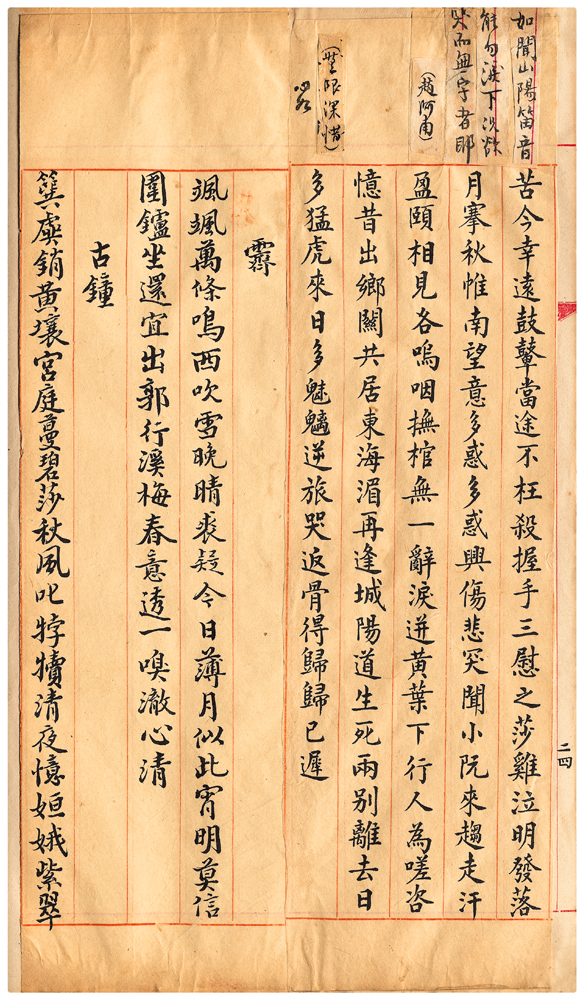 如聞山陽笛音
能勿淚下况
哭而無字者耶
(趙阿南)
(無限深惜)
苦今幸遠鼓鼙當途不枉殺握手三慰之莎雞泣明發落
月搴秋帷南望意多惑多惑興傷悲突聞小阮來趨走汗
盈頤相見各嗚咽撫棺無一辭淚迸黃葉下行人為嗟咨
憶昔出鄉關共居東海湄再逢城陽道生死兩別離去日
多猛虎來日多魅魑逆旅哭返骨得歸歸已遲
霽
颯颯萬條鳴西吹雪晚晴裘疑今日薄月似此宵明莫信
圍鑪坐還宜出郭行溪梅春意透一嗅澈心清
古鐘
簨虡銷黃壤宮庭蔓碧莎秋風叱牸犢清夜憶姮娥紫翠
二四